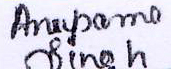 Anupama
Singh